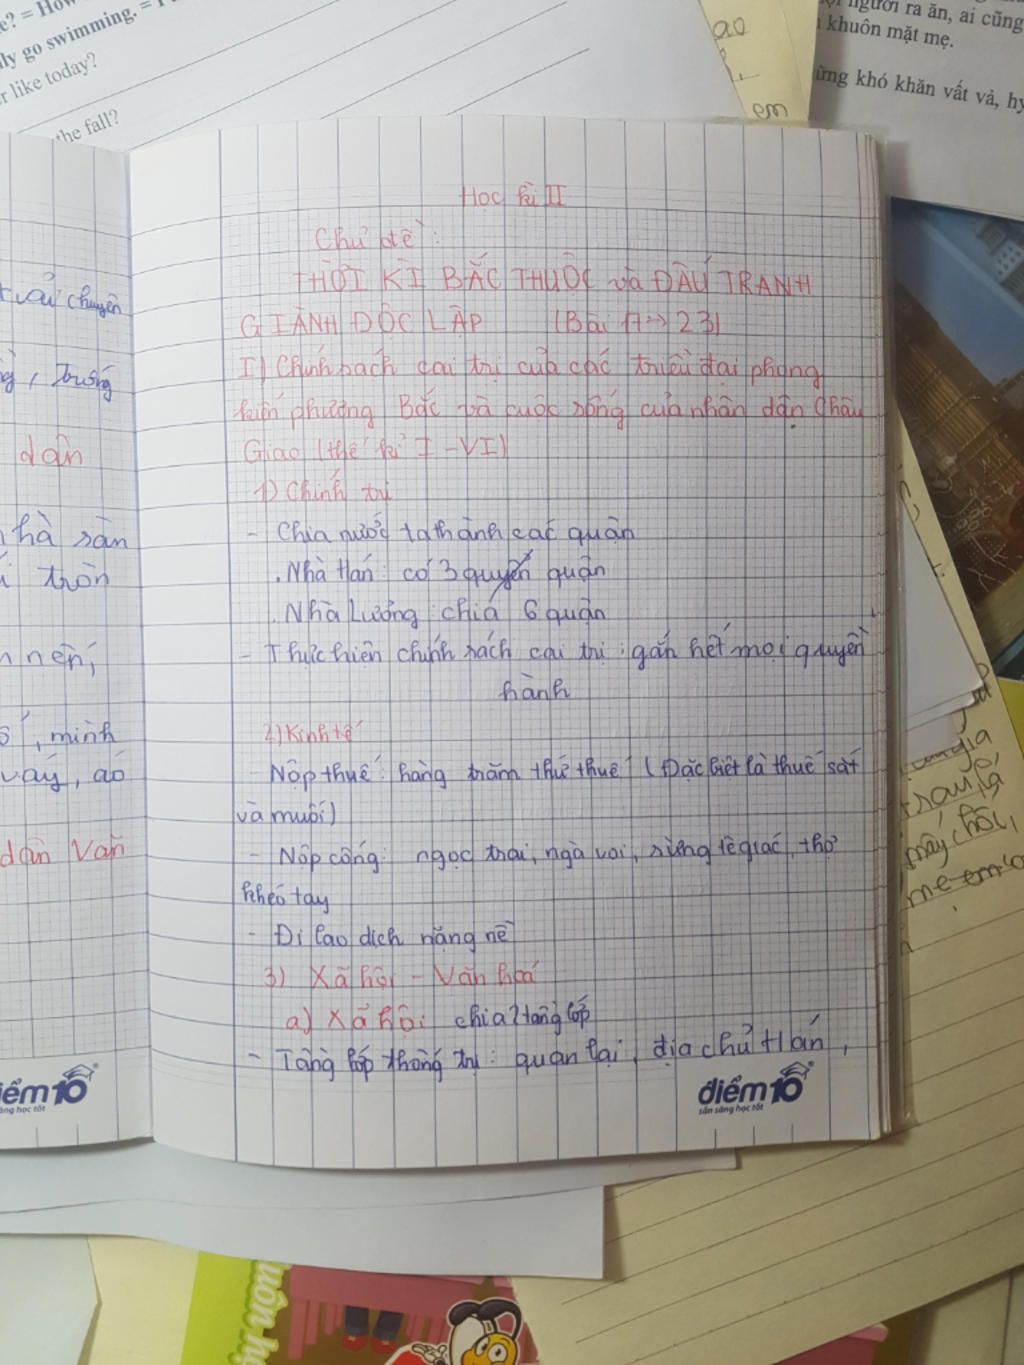 ly go swimming. =
r like today?
the fall?
ao
em
người ra ăn, ai cũng
khuôn mặt mẹ.
ững khó khăn vất vả, hy
chuyên
, trướng
dân
hà sàn
tròn
nền,
, minh
váy, áo
dân Văn
Học kì II
Chủ đề :
THỜI KÌ BẮC THUỘC và ĐẤU TRANH
GIÀNH ĐỘC LẬP (Bài 17->23)
I) Chính sách cai trị của các triều đại phong
kiến phương Bắc và cuộc sống của nhân dân Châu
Giao (thế kỉ I - VI)
1) Chính trị
- Chia nước ta thành các quận
. Nhà Hán : có 3 quận
. Nhà Lương : chia 6 quận
- Thực hiện chính sách cai trị : gắn hết mọi quyền
hành
2) Kinh tế
- Nộp thuế : hàng trăm thứ thuế (Đặc biệt là thuế sắt
và muối)
- Nộp cống : ngọc trai, ngà voi, sừng tê giác, thợ
khéo tay
- Đi lao dịch nặng nề
3) Xã hội - Văn hoá
a) Xã hội chia 2 tầng lớp
- Tầng lớp thống trị : quan lại, địa chủ Hán,
điểm 10
sẵn sàng học tốt
iểm 10
àng học tốt
mây chôi,
mẹ em